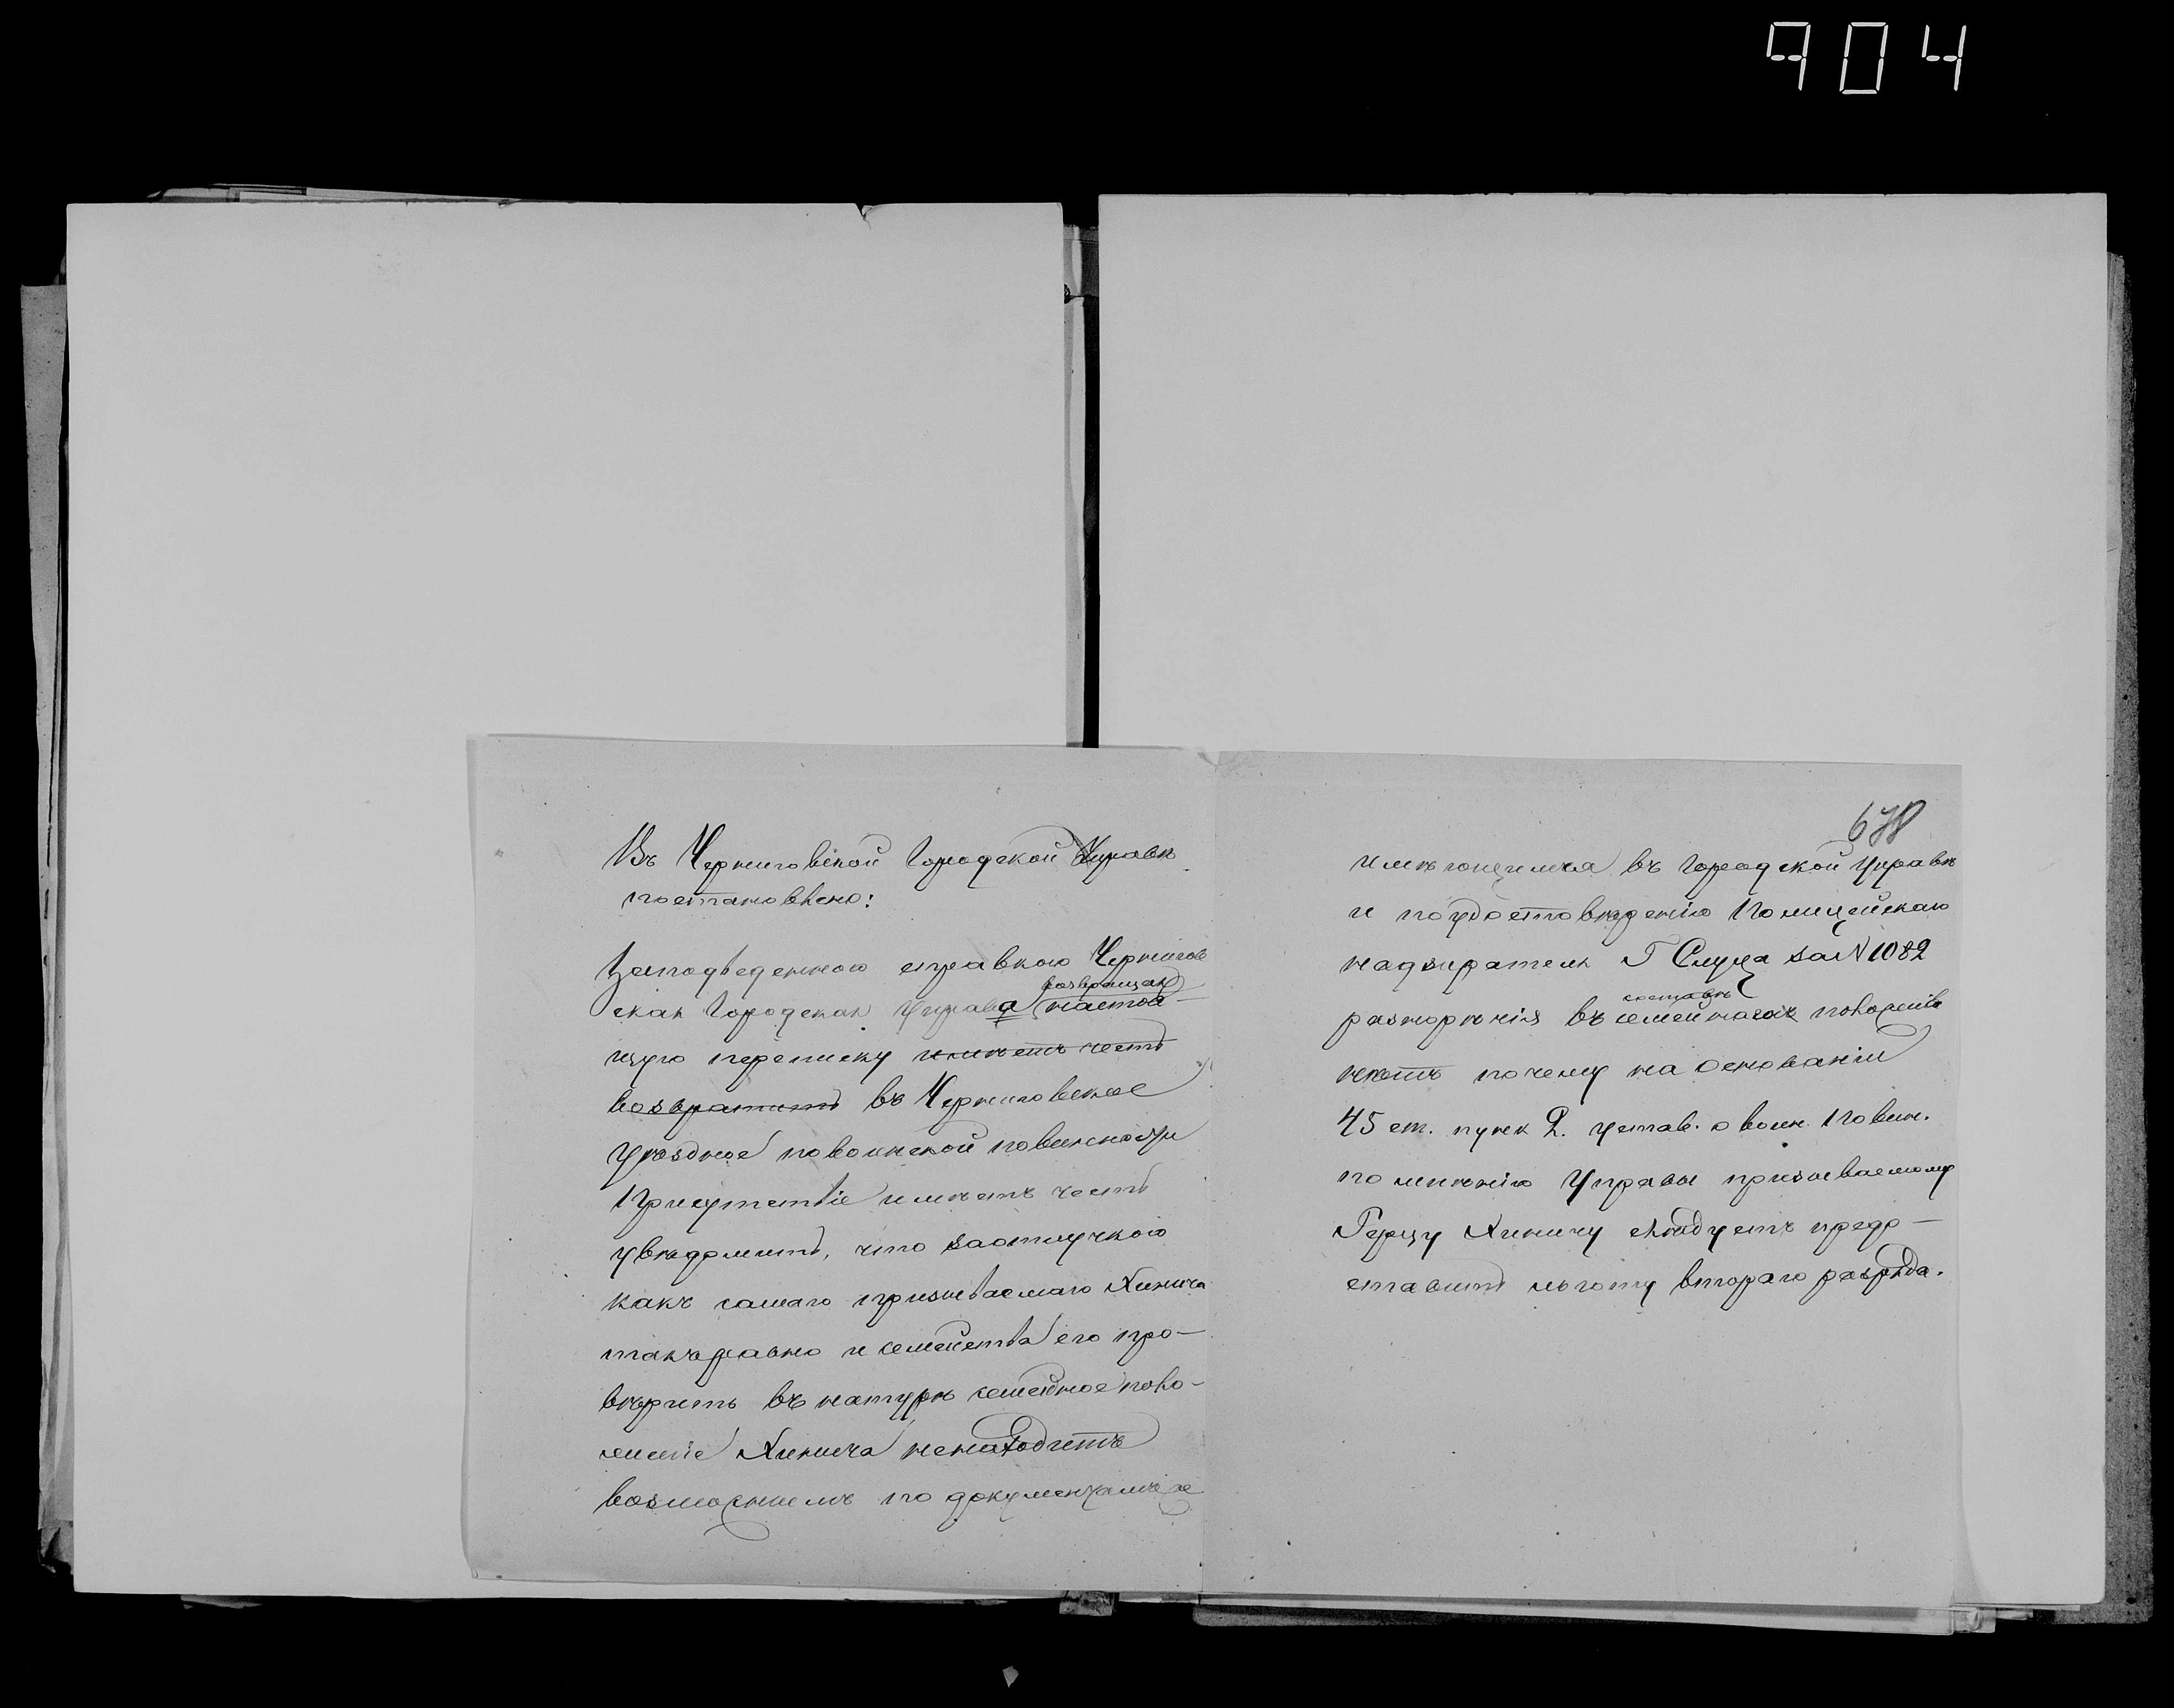 904
Въ Черниговской Городской Управѣ
постановлено:
Заподведенною справкою Чернигов
возвращая
ская Городская Управа настоя-
щую переписку имѣетъ честь
возвратить въ Черниговское
уѣздное повоинской повинности
Присутствіе имѣетъ честь
увѣдомить, что заотлучкою
какъ самаго призываемаго Хинича
такъравно и семейства его про-
вѣрить въ натурѣ семейное поло-
женіе Хинича ненаходитъ
возможнымъ по документамъ же
678
имѣющимся въ Городской Управѣ
и поудостовѣренію Полицейскаго
надзирателя Г Слуца за N 1082
составѣ
разнорѣчія въ семейномъ положеніи
нѣтъ почему на основаніи
45 ст. пунк 2. устав. о воин. Повин.
по мнѣнію Управы призываемому
Герцу Хиничу слѣдуетъ предо-
ставить льготу втораго разряда.